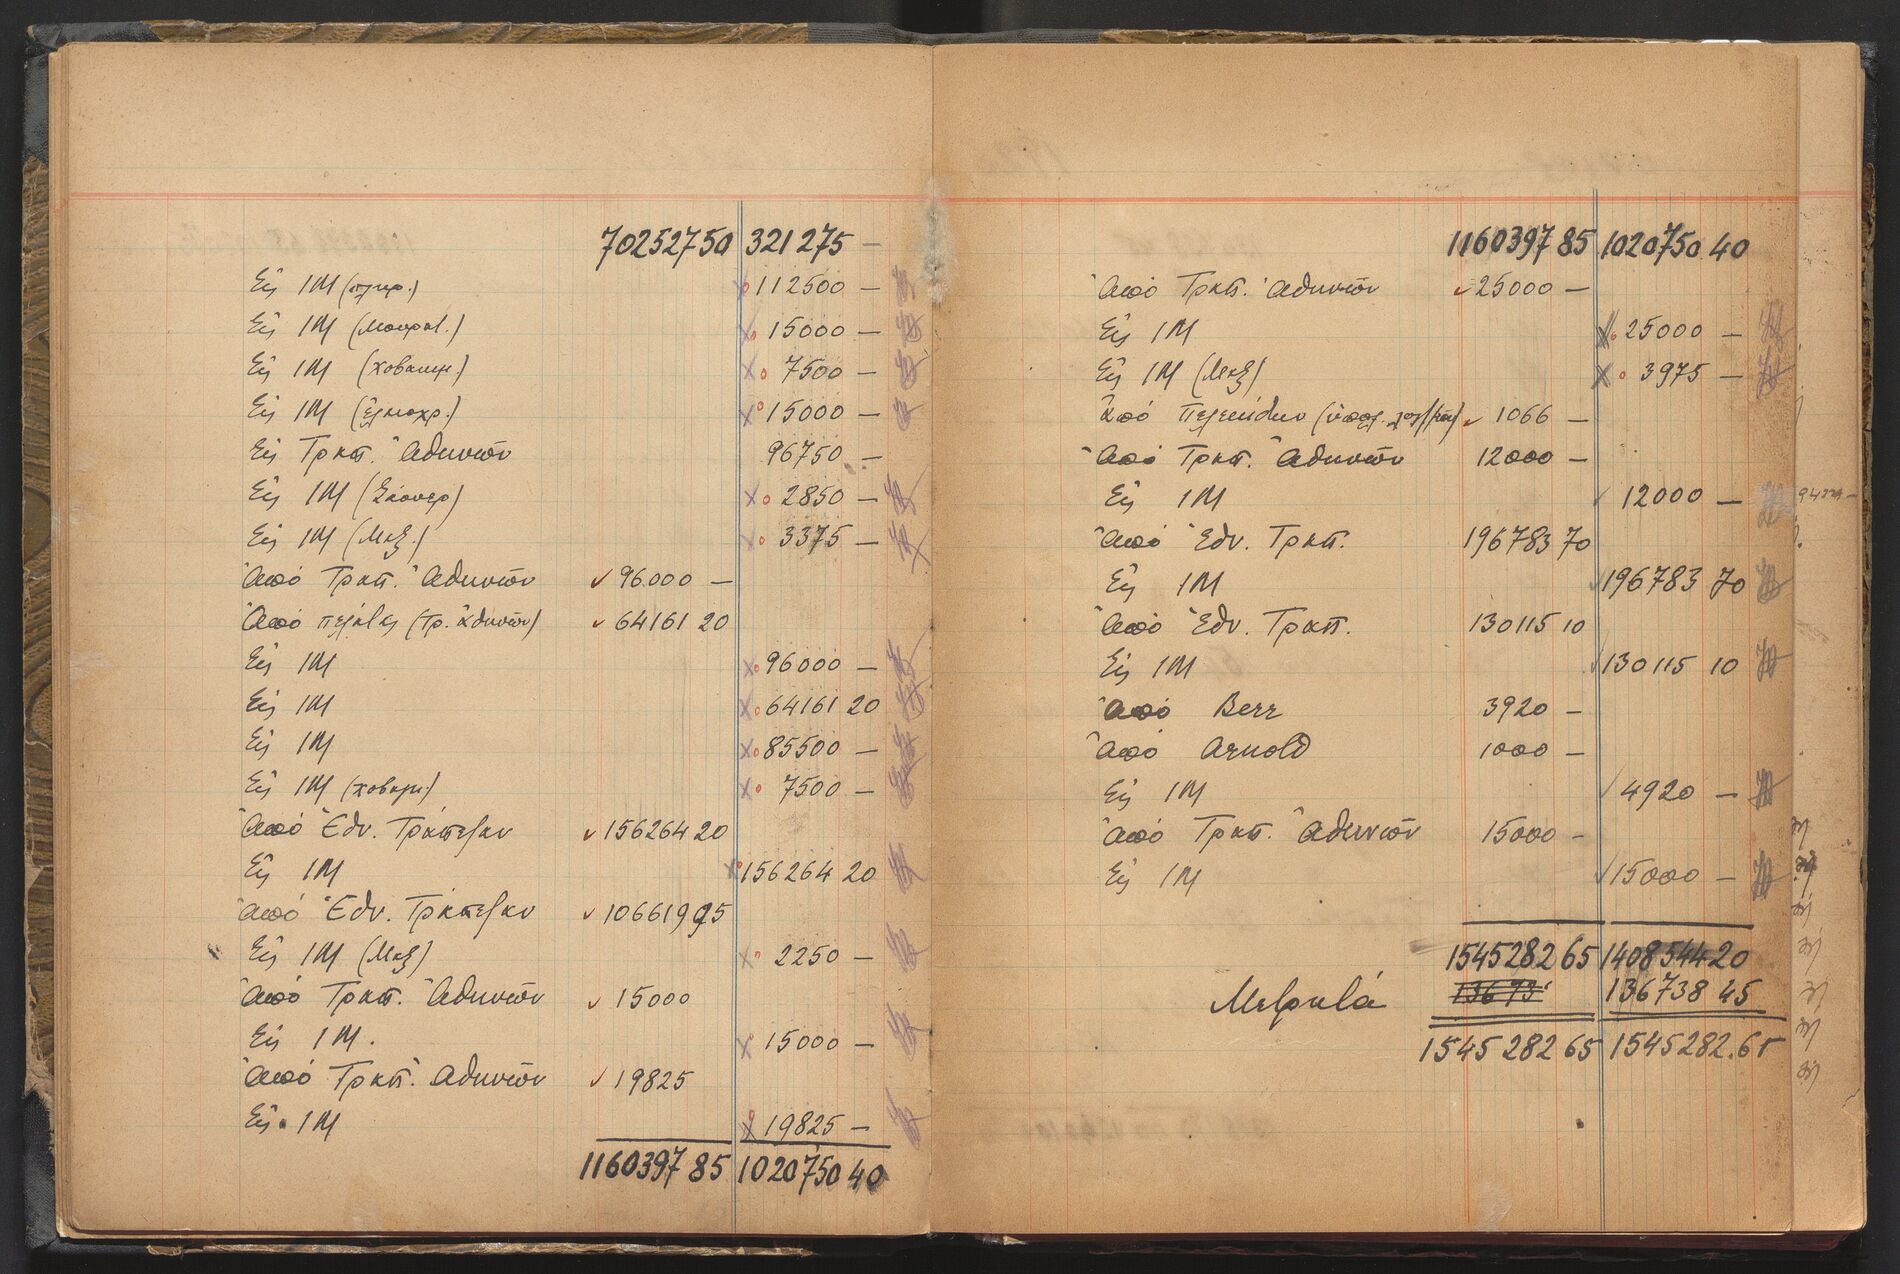 702527 50 321275 —
Εἰς 1Μ (πληρ.) 112500 —
Εἰς 1Μ 15000 —
Εἰς 1Μ 7500 —
Εἰς 1Μ 15000 —
Εἰς Τραπ. Ἀθηνῶν 96750 —
Εἰς 1Μ 2850 —
Εἰς 1Μ (Μεξ.) 3375 —
Ἀπό Τραπ. Ἀθηνῶν 96000 —
Ἀπό (Τρ. Ἀθηνῶν) 64161 20
Εἰς 1Μ 96000 —
Εἰς 1Μ 64161 20
Εἰς 1Μ 85500 —
Εἰς 1Μ 7500 —
Ἀπό Ἐθν. Τράπεζαν 156264 20
Εἰς 1Μ 156264 20
Ἀπό Ἐθν. Τράπεζαν 106619 95
Εἰς 1Μ (Μεξ) 2250 —
Ἀπό Τραπ. Ἀθηνῶν 15000
Εἰς 1Μ. 15000 —
Ἀπό Τραπ. Ἀθηνῶν 19825
Εἰς 1Μ 19825 —
1160397 85 1020750 40
1160397 85 1020750 40
Ἀπό Τραπ. Ἀθηνῶν 25000 —
Εἰς 1Μ 25000 —
Εἰς 1Μ (Μεξ) 3975 —
Ἀπό 1066 —
Ἀπό Τραπ. Ἀθηνῶν 12000 —
Εἰς 1Μ 12000 —
Ἀπό Ἐθν. Τραπ. 196783 70
Εἰς 1Μ 196783 70
Ἀπό Ἐθν. Τραπ. 130115 10
Εἰς 1Μ 130115 10
Ἀπό Berr 3920 —
Ἀπό Arnold 1000 —
Εἰς 1Μ 4920 —
Ἀπό Τραπ. Ἀθηνῶν 15000 —
Εἰς 1Μ 15000 —
1545282 65 1408544 20
Μεφρικά 13673 136738 45
1545282 65 1545282.65